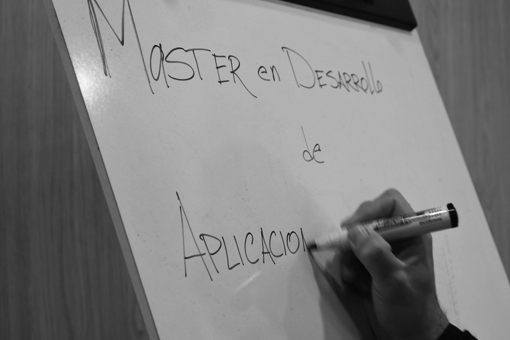 Master en Desarrollo
de
Aplicacion